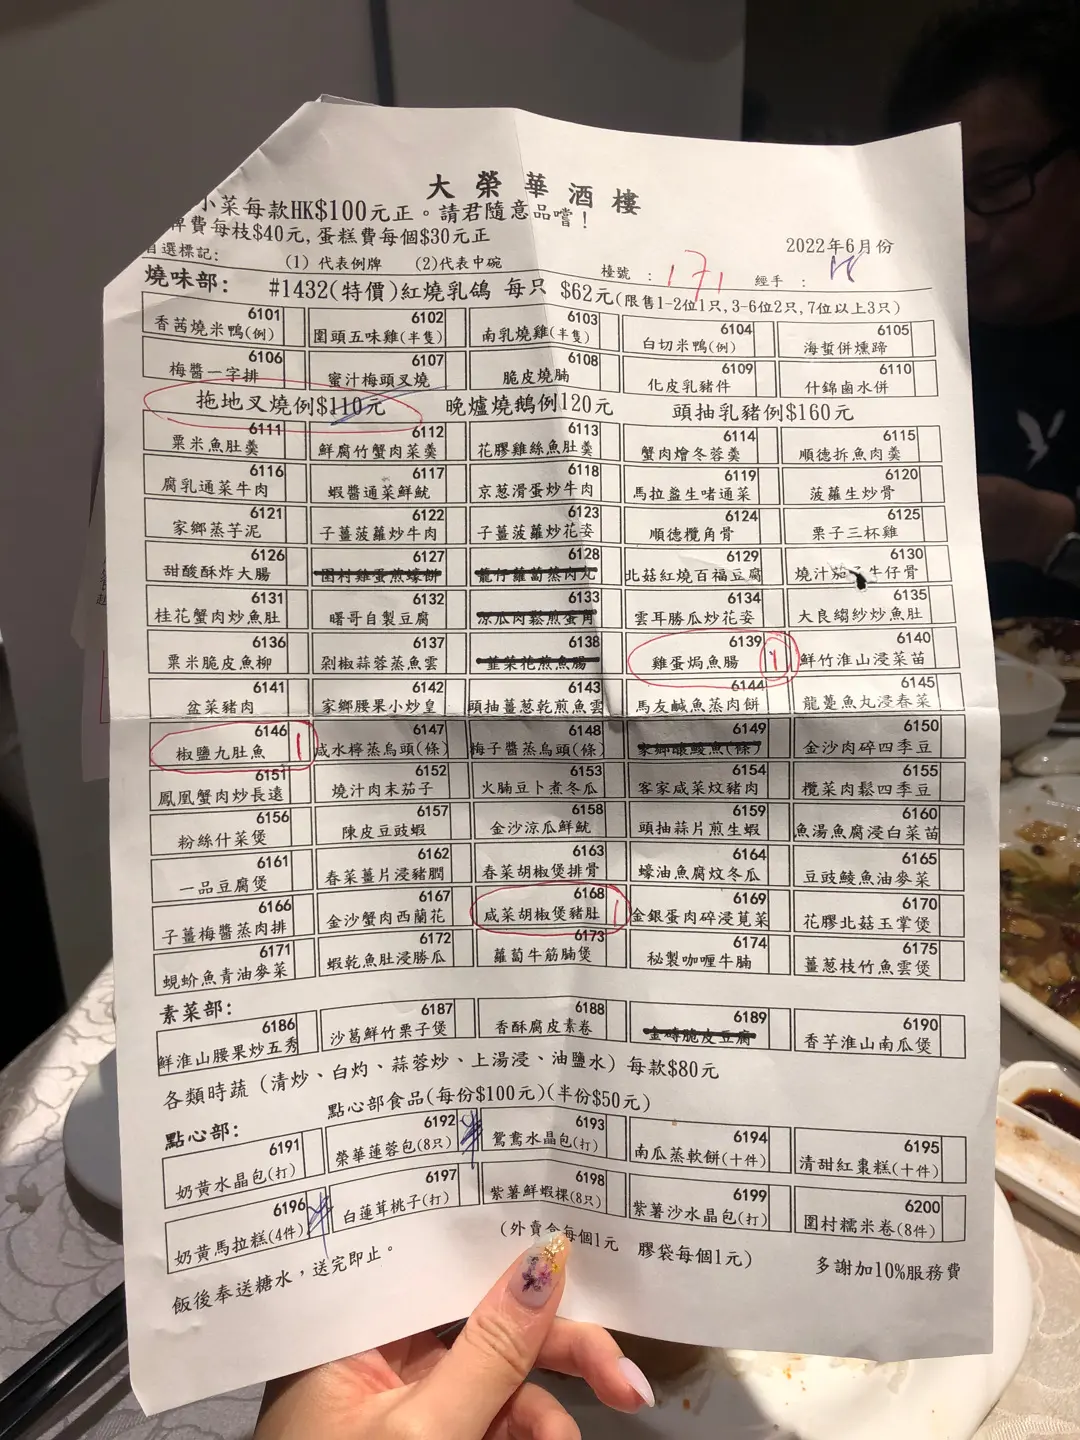 大榮華酒樓
小菜每款HK$100元正。請君隨意品嚐!
牌費每枝$40元,蛋糕費每個$30元正
2022年6月份
首選標記: (1) 代表例牌 (2)代表中碗 檯號 : 171 經手 :
燒味部: #1432(特價)紅燒乳鴿 每只 $62元(限售1-2位1只,3-6位2只,7位以上3只)
6101 6102 6103 6104 6105
香茜燒米鴨(例) 圍頭五味雞(半隻) 南乳燒雞(半隻) 白切米鴨(例) 海蜇併燻蹄
6106 6107 6108 6109 6110
梅醬一字排 蜜汁梅頭叉燒 脆皮燒腩 化皮乳豬件 什錦鹵水併
拖地叉燒例$110元 晚爐燒鵝例120元 頭抽乳豬例$160元
6111 6112 6113 6114 6115
粟米魚肚羹 鮮腐竹蟹肉菜羹 花膠雞絲魚肚羹 蟹肉燴冬蓉羹 順德拆魚肉羹
6116 6117 6118 6119 6120
腐乳通菜牛肉 蝦醬通菜鮮魷 京葱滑蛋炒牛肉 馬拉盞生啫通菜 菠蘿生炒骨
6121 6122 6123 6124 6125
家鄉蒸芋泥 子薑菠蘿炒牛肉 子薑菠蘿炒花姿 順德欖角骨 栗子三杯雞
6126 6127 6128 6129 6130
甜酸酥炸大腸 圍村雞蛋煎蠔餅 龍仔蘿蔔蒸肉丸 北菇紅燒百福豆腐 燒汁茄子牛仔骨
6131 6132 6133 6134 6135
桂花蟹肉炒魚肚 曙哥自製豆腐 涼瓜肉鬆煎蛋角 雲耳勝瓜炒花姿 大良縐紗炒魚肚
6136 6137 6138 6139 6140
粟米脆皮魚柳 剁椒蒜蓉蒸魚雲 韮菜花煎魚腸 雞蛋焗魚腸 1 鮮竹淮山浸菜苗
6141 6142 6143 6144 6145
盆菜豬肉 家鄉腰果小炒皇 頭抽薑葱乾煎魚雲 馬友鹹魚蒸肉餅 龍躉魚丸浸春菜
6146 6147 6148 6149 6150
椒鹽九肚魚 1 咸水檸蒸烏頭(條) 梅子醬蒸烏頭(條) 家鄉釀鯪魚(條) 金沙肉碎四季豆
6151 6152 6153 6154 6155
鳳凰蟹肉炒長遠 燒汁肉末茄子 火腩豆卜煮冬瓜 客家咸菜炆豬肉 欖菜肉鬆四季豆
6156 6157 6158 6159 6160
粉絲什菜煲 陳皮豆豉蝦 金沙涼瓜鮮魷 頭抽蒜片煎生蝦 魚湯魚腐浸白菜苗
6161 6162 6163 6164 6165
一品豆腐煲 春菜薑片浸豬膶 春菜胡椒煲排骨 蠔油魚腐炆冬瓜 豆豉鯪魚油麥菜
6166 6167 6168 6169 6170
子薑梅醬蒸肉排 金沙蟹肉西蘭花 咸菜胡椒煲豬肚 1 金銀蛋肉碎浸莧菜 花膠北菇玉掌煲
6171 6172 6173 6174 6175
蜆蚧魚青油麥菜 蝦乾魚肚浸勝瓜 蘿蔔牛筋腩煲 秘製咖喱牛腩 薑葱枝竹魚雲煲
素菜部:
6186 6187 6188 6189 6190
鮮淮山腰果炒五秀 沙葛鮮竹栗子煲 香酥腐皮素卷 金磚脆皮豆腐 香芋淮山南瓜煲
各類時蔬 (清炒、白灼、蒜蓉炒、上湯浸、油鹽水) 每款$80元
點心部食品(每份$100元)(半份$50元)
點心部:
6191 6192 6193 6194 6195
奶黃水晶包(打) 榮華蓮蓉包(8只) 鴛鴦水晶包(打) 南瓜蒸軟餅(十件) 清甜紅棗糕(十件)
6196 6197 6198 6199 6200
奶黃馬拉糕(4件) 白蓮茸桃子(打) 紫薯鮮蝦粿(8只) 紫薯沙水晶包(打) 圍村糯米卷(8件)
(外賣盒每個1元 膠袋每個1元)
飯後奉送糖水,送完即止。 多謝加10%服務費